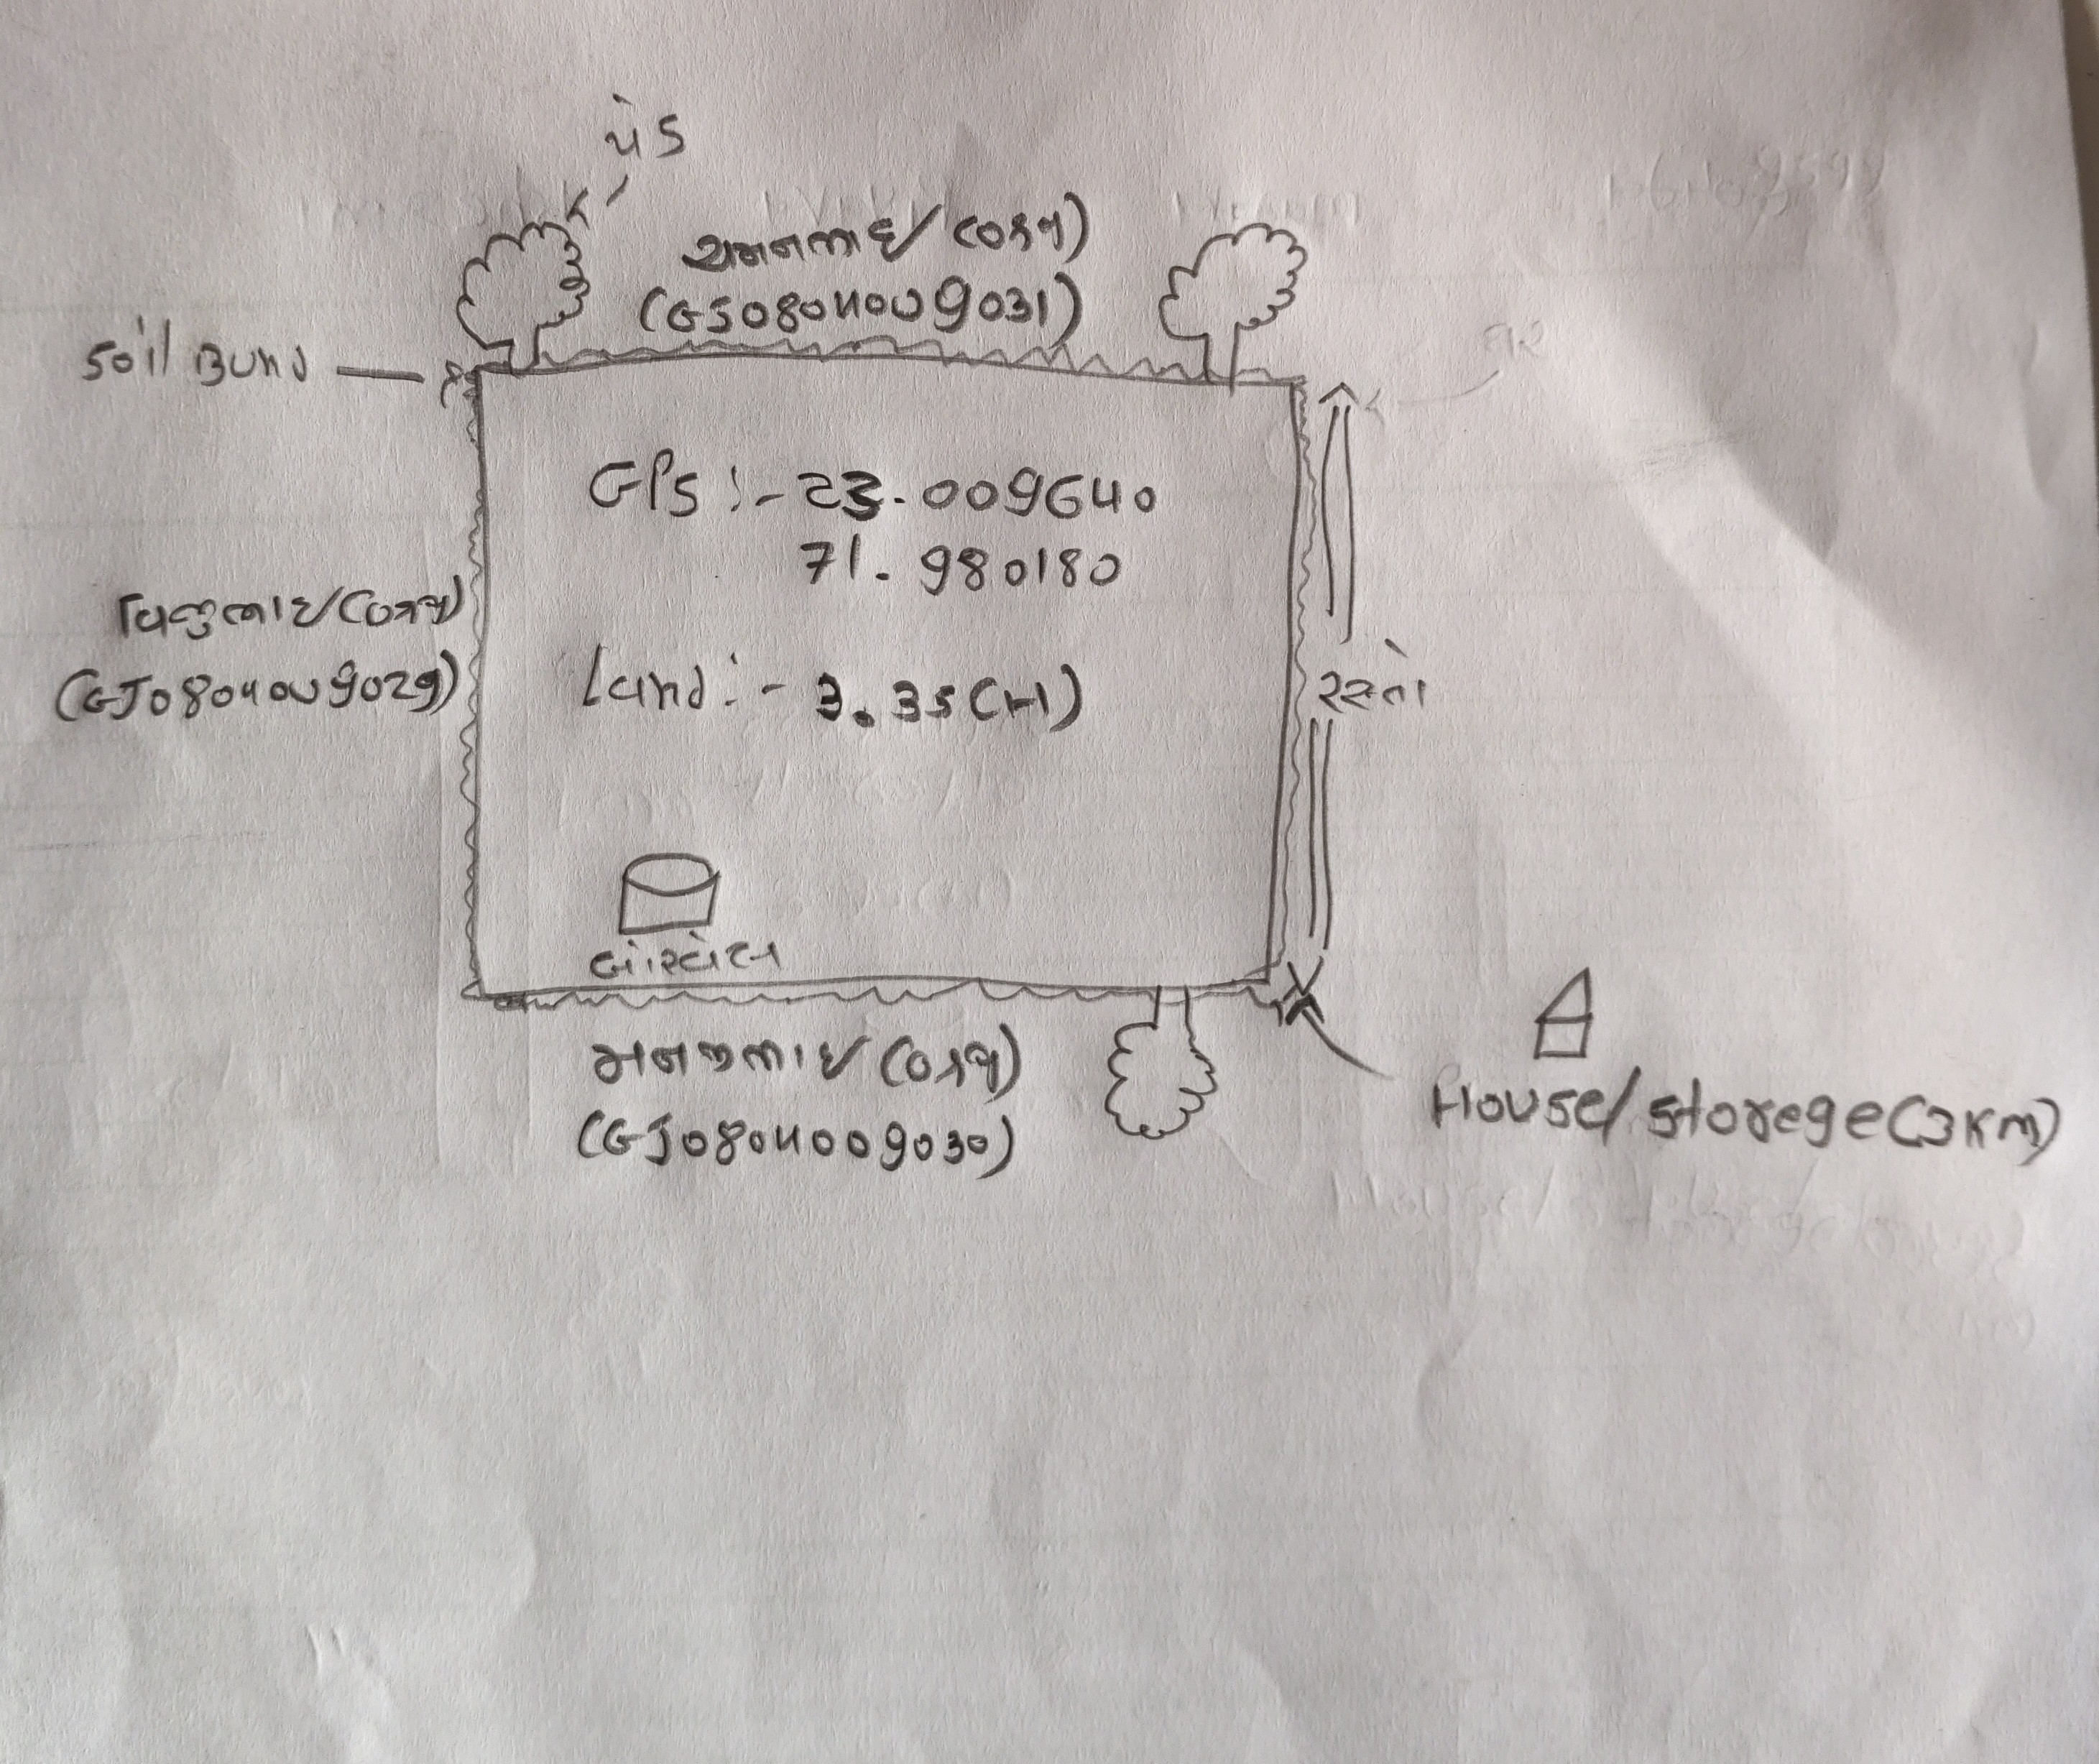 પેડ
ચમનભાઇ (૦ર્ગ)
(GJ0804009031)
Soil Bund
GPS :- 23.009640
71.980180
(GJ0804009029)
Land :- 3.35 (H)
રસ્તો
બોરવેલ
મનજીભાઇ
(GJ0804009030)
House/storege(3Km)